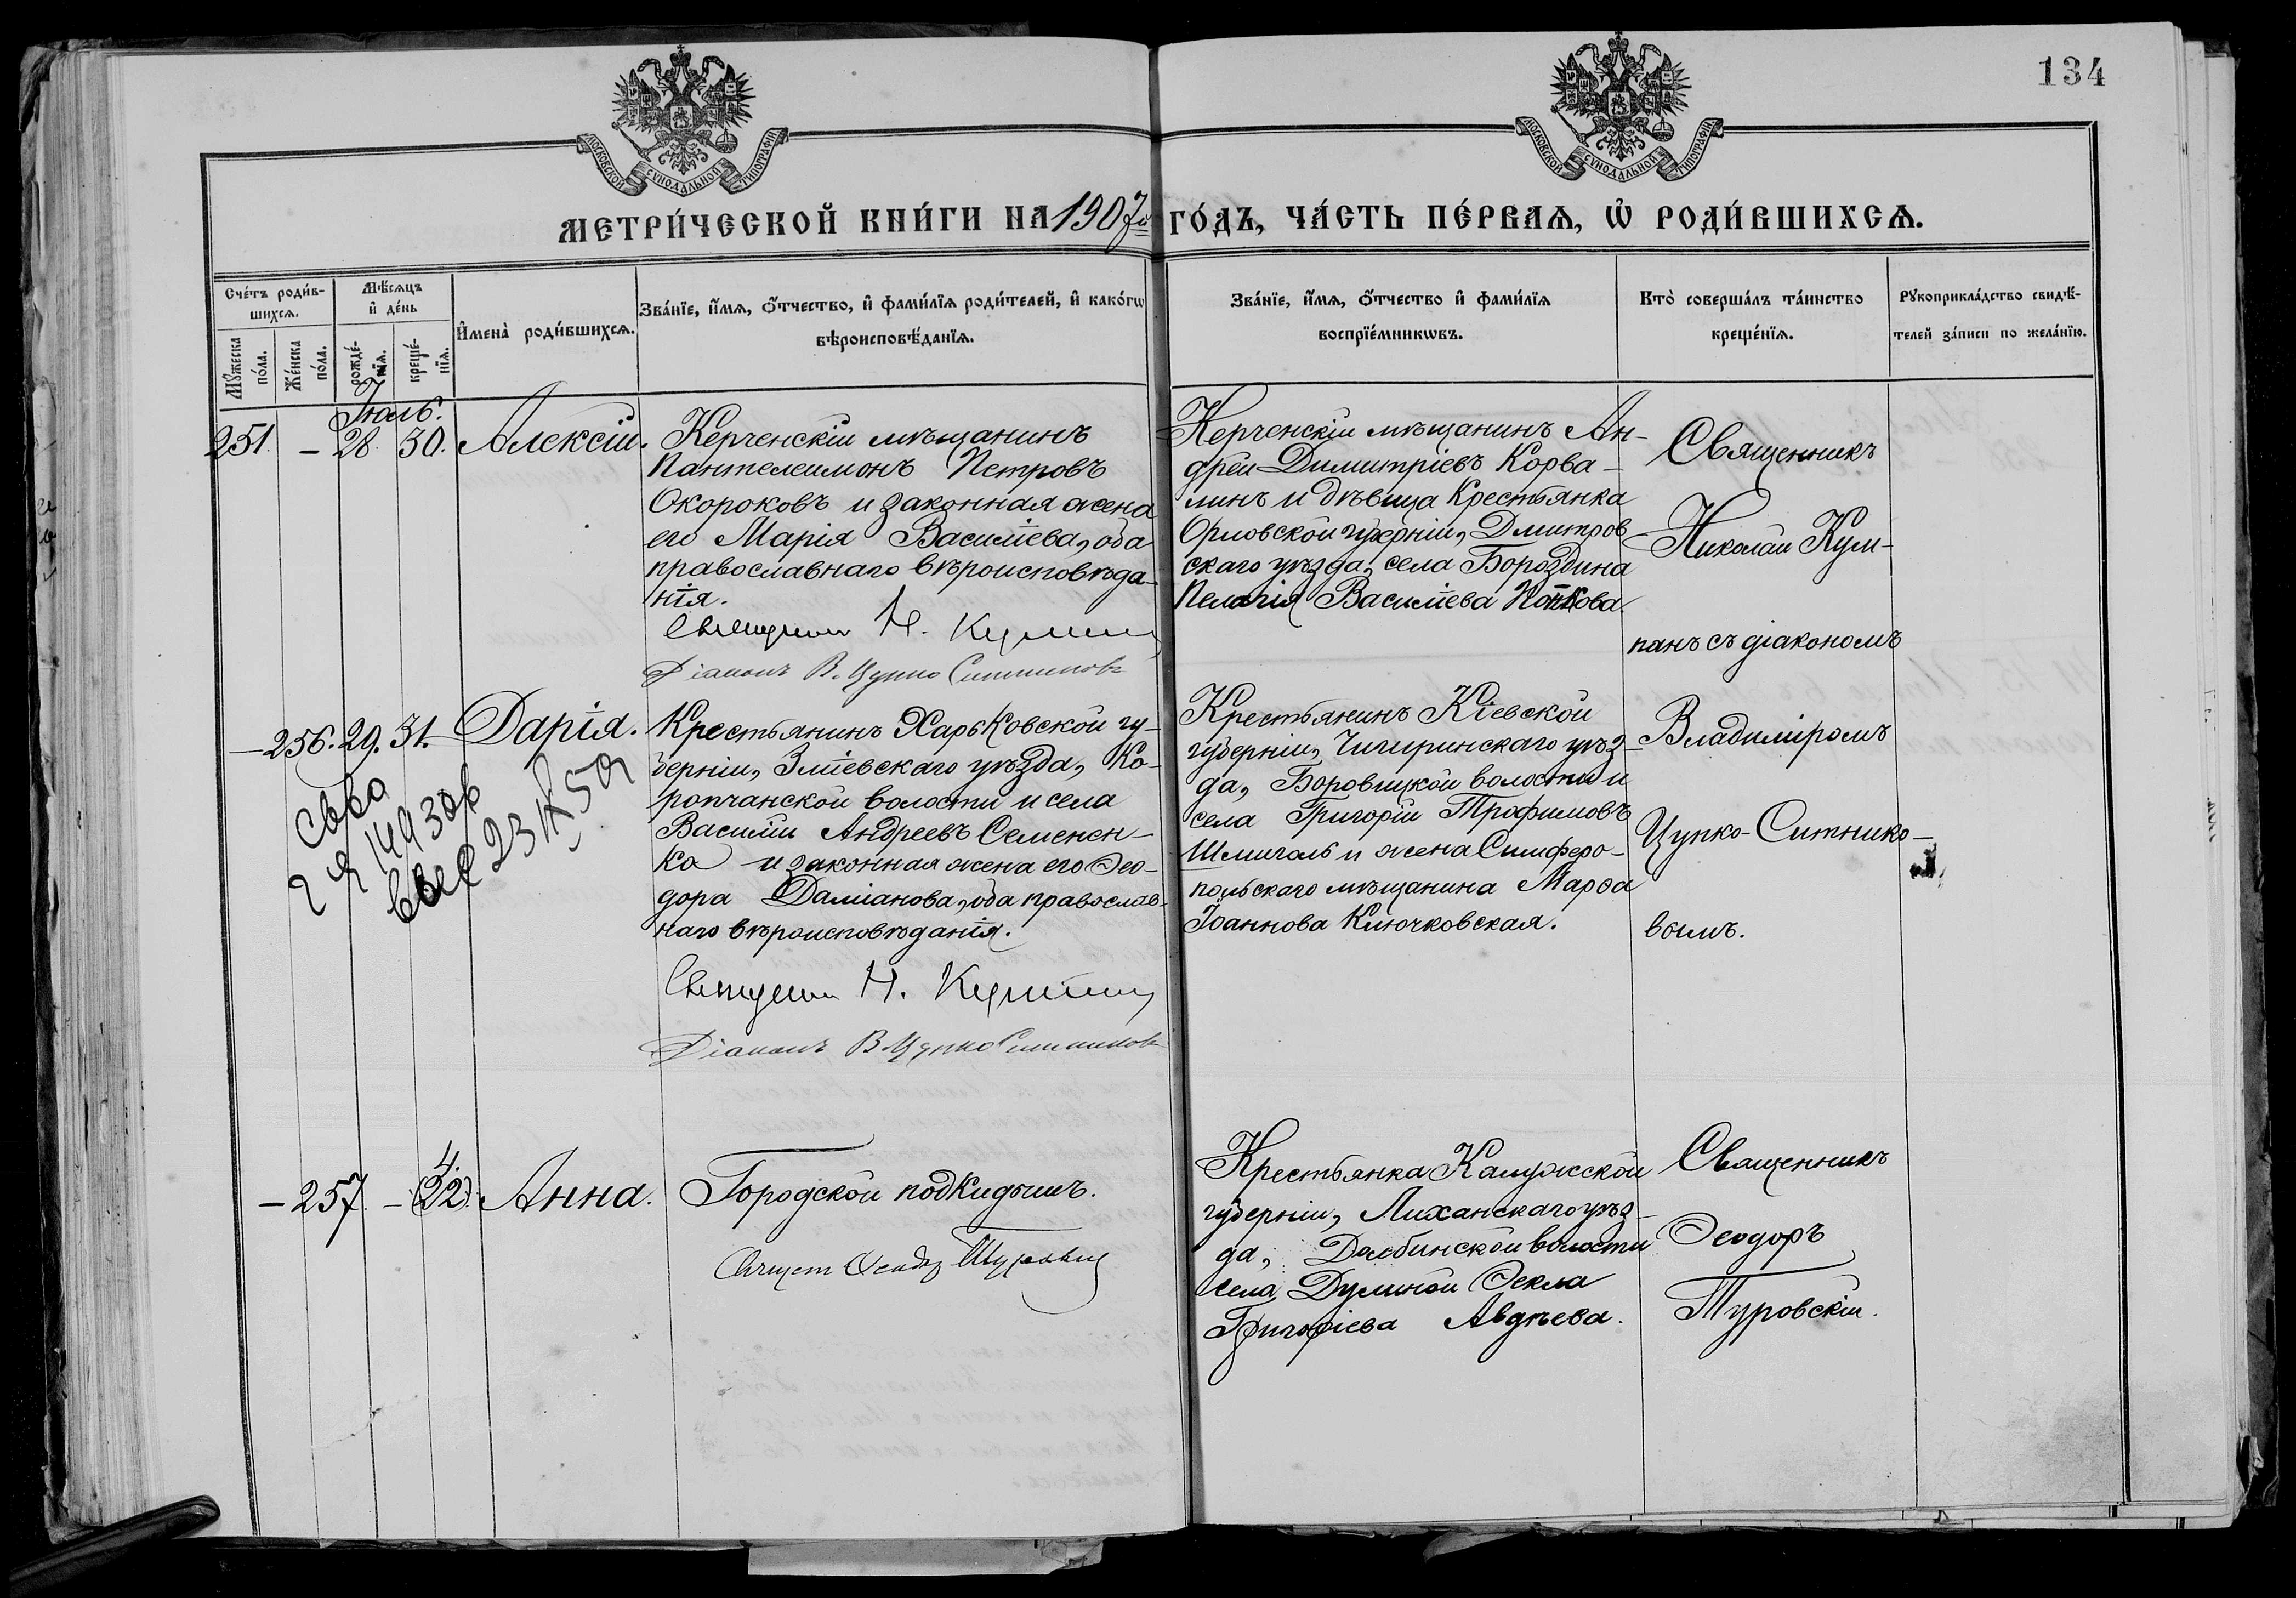 134
МОСКОВСКОЙ СѴНОДАЛЬНОЙ ТИПОГРАФІИ
МОСКОВСКОЙ СѴНОДАЛЬНОЙ ТИПОГРАФІИ
МЕТРИ́ЧЕСКОЙ КНИ́ГИ НА 1907й ГО́ДЪ, ЧА́СТЬ ПЕ́РВАЯ, Ѡ҆ РОДИ́ВШИХСѦ.
Сче́тъ роди́в-
шихсѧ.
Мꙋ́жеска по́ла.
Же́нска по́ла.
Мѣ́сѧцъ
и҆ де́нь
рожде́-
нїѧ.
креще́-
нїѧ.
И҆мена̀ роди́вшихсѧ.
Зва́нїе, и҆́мѧ, ѻ҆́тчество, и҆ фами́лїѧ роди́телей, и҆ како́гѡ
вѣроисповѣ́данїѧ.
Зва́нїе, и҆́мѧ, ѻ҆́тчество и҆ фами́лїѧ
воспрїе́мникѡвъ.
Кто̀ соверша́лъ та́инство
креще́нїѧ.
Рꙋкоприкла́дство свидѣ́-
телей за́писи по жела́нїю.
Іюль.
251. – 28. 30. Алексій.
Керченскій мѣщанинъ
Пантелеимонъ Петровъ
Окороковъ и законная жена
его Марія Василіева, оба
православнаго вѣроисповѣда-
нія.
Священник Н. Кулипан
Діаконъ В. Цупко Ситников
Керченскій мѣщанинъ Ан-
дрей Димитріевъ Корва-
линъ и дѣвица Крестьянка
Орловской губерніи, Дмитров
скаго уѣзда, села Бороздина
Пелагія Василіева Попкова
Священникъ
Николай Кули-
панъ съ діакономъ
Владиміромъ
Цупко-Ситнико-
вымъ.
– 256. 29. 31. Дарія.
Крестьянинъ Харьковской гу-
берніи, Зміевскаго уѣзда, Ко-
ропчанской волости и села
Василій Андреевъ Семенен-
ко и законная жена его Ѳео-
дора Даміанова, оба православ-
наго вѣроисповѣданія.
Священник Н. Кулипан
Діаконъ В. Цупко Ситников
Крестьянинъ Кіевской
губерніи, Чигиринскаго уѣз-
да, Боровицкой волости и
села Григорій Трофимовъ
Шмигаль и жена Симферо-
польскаго мѣщанина Марѳа
Іоаннова Ключковская.
23 IX 50
4.
– 257. – (22). Анна.
Городской подкидышъ.
Священ Ѳеодор Туровский
Крестьянка Калужской
губерніи, Лиханскаго уѣз-
да, Долбинской волости
села Дулиной Ѳекла
Григоріева Авдѣева.
Священникъ
Ѳеодоръ
Туровскій.